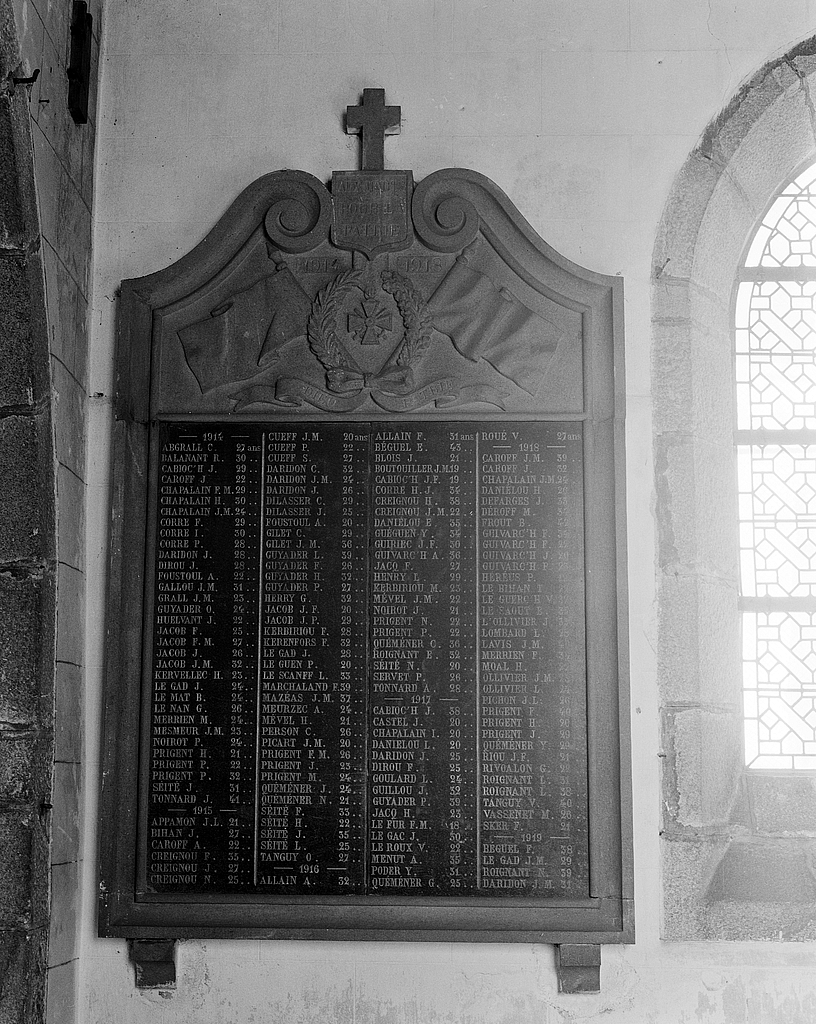 PATRIE
1914 1918
1914
ABGRALL C. 27 ans
BALANANT R. 30
CABIOC'H J. 29
CAROFF J 22
CHAPALAIN F.M. 29
CHAPALAIN H. 30
CHAPALAIN J.M. 24
CORRE F. 29
CORRE I. 30
CORRE P. 28
DARIDON J. 28
DIROU J. 28
FOUSTOUL A. 22
GALLOU J.M. 31
GRALL J.M. 23
GUYADER O. 24
HUELVANT J. 22
JACOB F. 25
JACOB F.M. 27
JACOB J. 26
JACOB J.M. 32
KERVELLEC H. 23
LE GAD J. 24
LE MAT B. 24
LE NAN G. 26
MERRIEN M. 24
MESMEUR J.M. 23
NOIROT P. 24
PRIGENT H. 21
PRIGENT P. 22
PRIGENT P. 32
SÉITÉ J. 31
TONNARD J. 41
1915
APPAMON J.L. 21
BIHAN J. 27
CAROFF A. 22
CREIGNOU F. 35
CREIGNOU J. 27
CREIGNOU N. 25
CUEFF J.M. 20 ans
CUEFF P. 22
CUEFF S. 27
DARIDON C. 32
DARIDON J.M. 24
DARIDON J. 26
DILASSER C. 29
DILASSER J. 25
FOUSTOUL A. 20
GILET C. 29
GILET J.M. 36
GUYADER L. 39
GUYADER F. 26
GUYADER H. 32
GUYADER P. 27
HERRY G. 32
JACOB J.F. 20
JACOB J.P. 29
KERBIRIOU F. 28
KERENFORS F. 32
LE GAD J. 28
LE GUEN P. 20
LE SCANFF L. 33
MARCHALAND F. 39
MAZÉAS J.M. 37
MEURZEC A. 24
MÉVEL H. 21
PERSON C. 26
PICART J.M. 20
PRIGENT F.M. 26
PRIGENT J. 23
PRIGENT M. 24
QUÉMÉNER J. 24
QUÉMÉNER N. 21
SÉITÉ F. 33
SÉITÉ H. 22
SÉITÉ J. 35
SÉITÉ L. 25
TANGUY O. 27
1916
ALLAIN A. 32
ALLAIN F. 31 ans
BÉGUEL E. 43
BLOIS J. 21
BOUTOUILLER J.M. 19
CABIOC'H J.F. 19
CORRE H.J. 34
CREIGNOU H. 38
CREIGNOU J.M. 22
DANIÉLOU E. 35
GUÉGUEN Y. 34
GUIRIEC J.F. 30
GUIVARC'H A. 36
JACQ F. 27
HENRY L. 29
KERBIRIOU M. 23
MÉVEL J.M. 22
NOIROT J. 21
PRIGENT N. 22
PRIGENT P. 22
QUÉMÉNER C. 36
ROIGNANT E. 32
SÉITÉ N. 20
SERVET P. 26
TONNARD A. 28
1917
CABIOC'H J. 38
CASTEL J. 20
CHAPALAIN I. 20
DANIELOU L. 20
DARIDON J. 25
DIROU F. 25
GOULARD L. 24
GUILLOU J. 32
GUYADER P. 39
JACQ H. 23
LE FUR F.M. 18
LE GAC J. 30
LE ROUX V. 22
MENUT A. 35
PODER Y. 31
QUÉMÉNER G. 25
ROUÉ V. 27 ans
1918
CAROFF J.M. 39
CAROFF J. 32
CHAPALAIN J.M. 24
DANIÉLOU H.
DEFARGES J.
DÉROFF M.
FROUT B.
GUIVARC'H F.
GUIVARC'H F.
GUIVARC'H J.
GUIVARC'H F.
HEREUS P.
LE BIHAN
LE GUERCH V.
LE SAOUT E.
L'OLLIVIER J.
LOMBARD L.
LAVIS J.M.
MERRIEN F.
MOAL H.
OLLIVIER J.M.
OLLIVIER L.
PICHON J.L.
PRIGENT F. 40
PRIGENT H. 20
PRIGENT J. 29
QUÉMÉNER Y.
RIOU J.F. 21
RIVOALON G.
ROIGNANT L.
ROIGNANT L. 38
TANGUY V. 40
VASSENET M. 26
SKER F. 21
1919
BÉGUEL F. 38
LE GAD J.M. 29
ROIGNANT N. 39
DARIDON J.M. 31